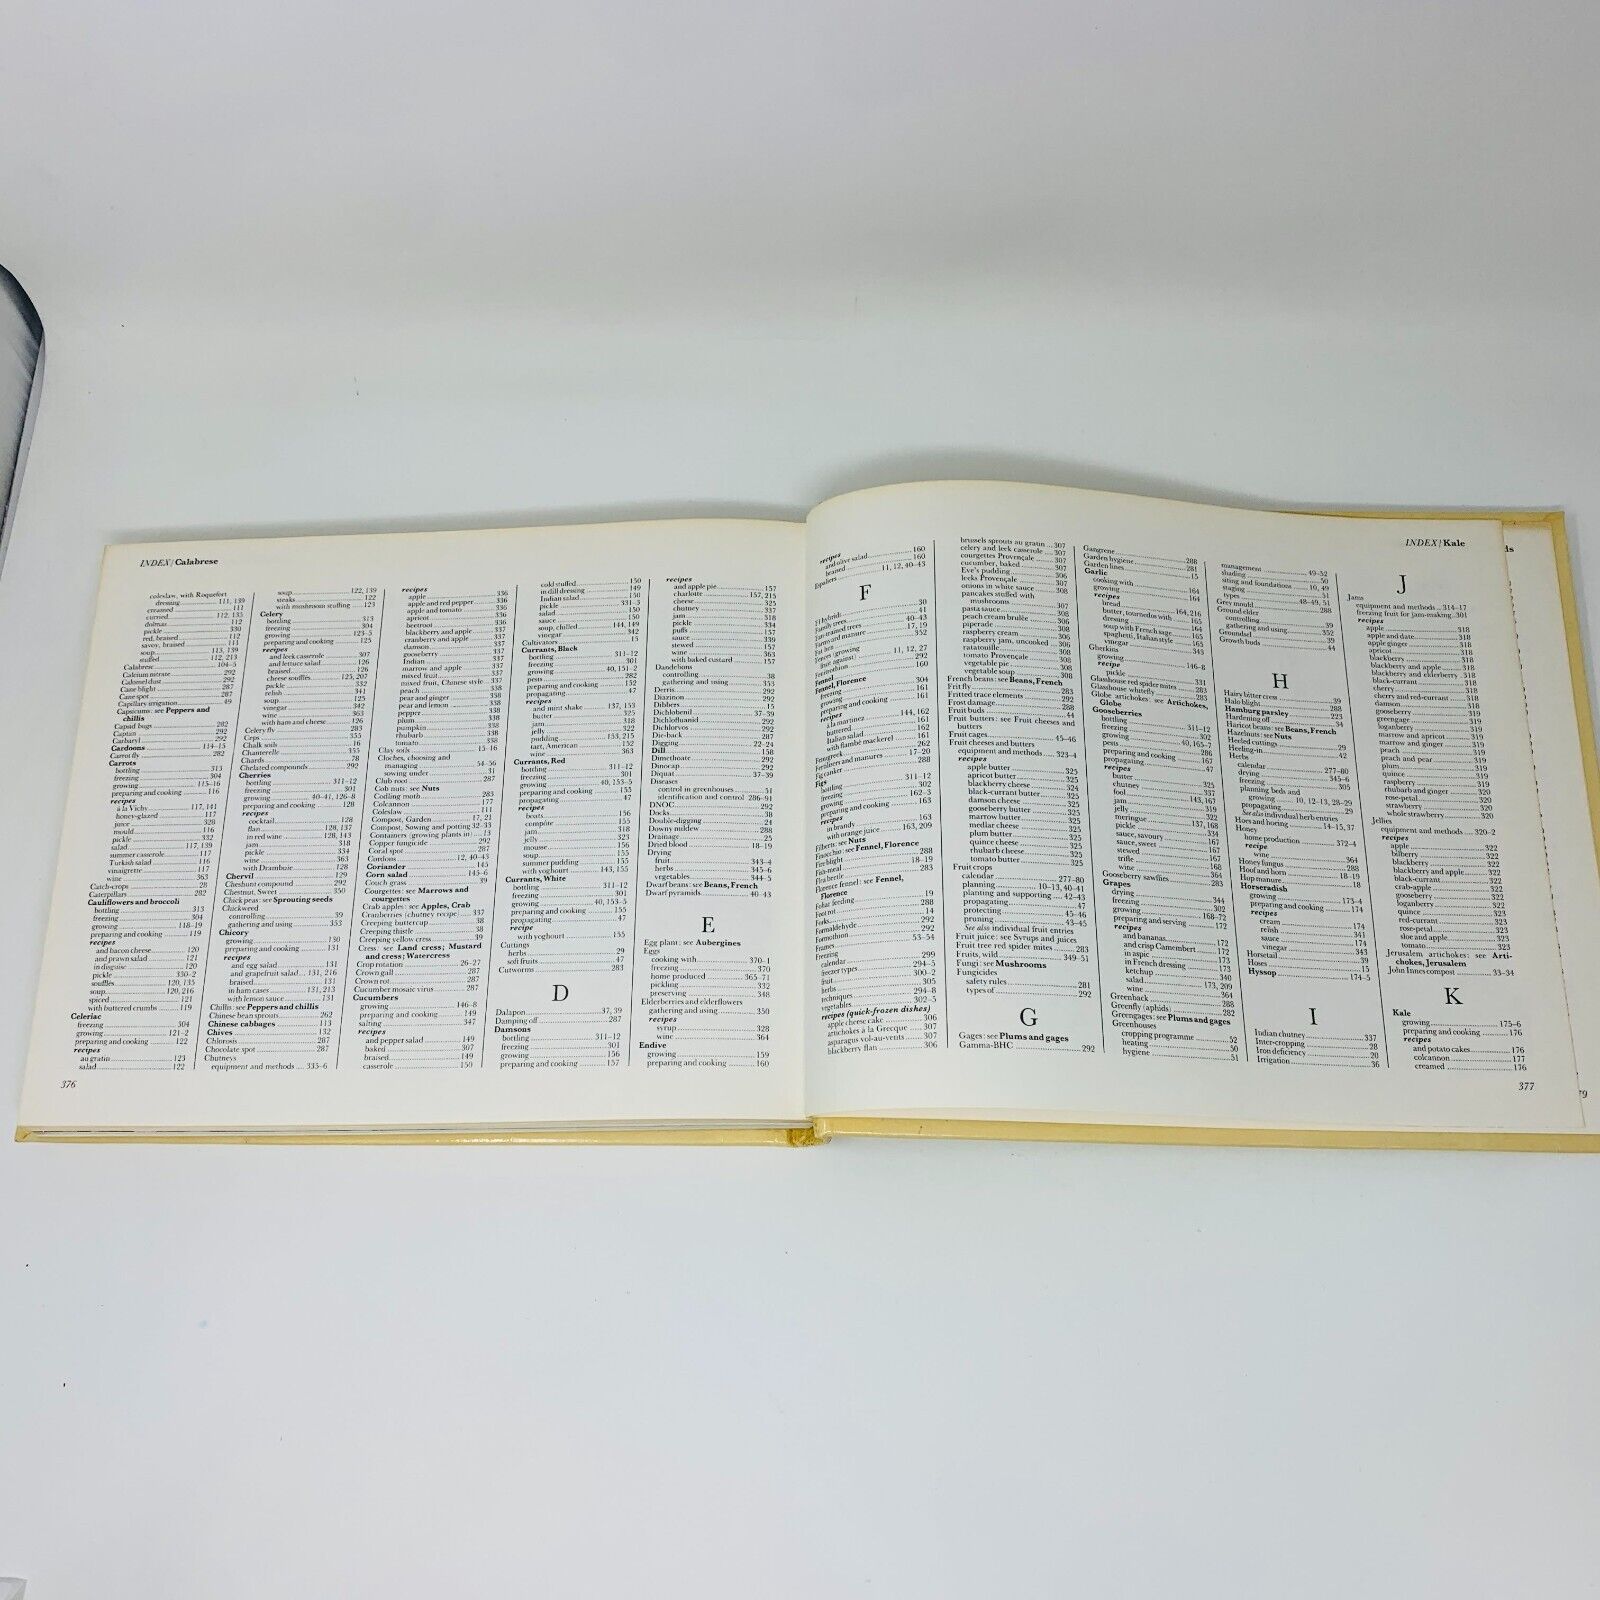 INDEX/Calabrese
coleslaw, with Roquefort
dressing 111, 139
creamed 111
curried 112, 135
dolmas 112
pickle 330
red, braised 112
savoy, braised 111
soup 113, 139
stuffed 112, 213
Calabrese 104–5
Calcium nitrate 292
Calomel dust 292
Cane blight 287
Cane spot 287
Capillary irrigation 49
Capsicums: see Peppers and
chillis
Capsid bugs 282
Captan 292
Carbaryl 292
Cardoons 114–15
Carrot fly 282
Carrots
bottling 313
freezing 304
growing 115–16
preparing and cooking 116
recipes
à la Vichy 117, 141
honey-glazed 117
juice 328
mould 116
pickle 332
salad 117, 139
summer casserole 117
Turkish salad 116
vinaigrette 117
wine 363
Catch-crops 28
Caterpillars 282
Cauliflowers and broccoli
bottling 313
freezing 304
growing 118–19
preparing and cooking 119
recipes
and bacon cheese 120
and prawn salad 121
in disguise 120
pickle 330–2
soufflés 120, 135
soup 120, 216
spiced 121
with buttered crumbs 119
Celeriac
freezing 304
growing 121–2
preparing and cooking 122
recipes
au gratin 123
salad 122
376
soup 122, 139
steaks 122
with mushroom stuffing 123
Celery
bottling 313
freezing 304
growing 123–5
preparing and cooking 125
recipes
and leek casserole 307
and lettuce salad 126
braised 126
cheese soufflés 125, 207
pickle 332
relish 341
soup 125
vinegar 342
wine 363
with ham and cheese 126
Celery fly 283
Ceps 355
Chalk soils 16
Chanterelle 355
Chards 78
Chelated compounds 292
Cherries
bottling 311–12
freezing 301
growing 40–41, 126–8
preparing and cooking 128
recipes
cocktail 128
flan 128, 137
in red wine 128, 143
jam 318
pickle 334
wine 363
with Drambuie 128
Chervil 129
Cheshunt compound 292
Chestnut, Sweet 350
Chick peas: see Sprouting seeds
Chickweed
controlling 39
gathering and using 353
Chicory
growing 130
preparing and cooking 131
recipes
and egg salad 131
and grapefruit salad 131, 216
braised 131
in ham cases 131, 213
with lemon sauce 131
Chillis: see Peppers and chillis
Chinese bean sprouts 262
Chinese cabbages 113
Chives 132
Chlorosis 287
Chocolate spot 287
Chutneys
equipment and methods 335–6
recipes
apple 336
apple and red pepper 336
apple and tomato 336
apricot 336
beetroot 336
blackberry and apple 337
cranberry and apple 337
damson 337
gooseberry 337
Indian 337
marrow and apple 337
mixed fruit 337
mixed fruit, Chinese style 337
peach 338
pear and ginger 338
pear and lemon 338
pepper 338
plum 338
pumpkin 338
rhubarb 338
tomato 338
Clay soils 15–16
Cloches, choosing and
managing 54–56
sowing under 31
Club root 287
Cob nuts: see Nuts
Codling moth 283
Colcannon 177
Coleslaw 111
Compost, Garden 17, 21
Compost, Sowing and potting 32–33
Containers (growing plants in) 13
Copper fungicide 292
Coral spot 287
Cordons 12, 40–43
Coriander 145
Corn salad 145–6
Couch grass 39
Courgettes: see Marrows and
courgettes
Crab apples: see Apples, Crab
Cranberries (chutney recipe) 337
Creeping buttercup 38
Creeping thistle 38
Creeping yellow cress 39
Cress: see Land cress; Mustard
and cress; Watercress
Crop rotation 26–27
Crown gall 287
Crown rot 287
Cucumber mosaic virus 287
Cucumbers
growing 146–8
preparing and cooking 149
salting 347
recipes
and pepper salad 149
baked 307
braised 149
casserole 150
cold stuffed 150
in dill dressing 149
Indian salad 150
pickle 331–3
salad 150
sauce 150
soup, chilled 144, 149
vinegar 342
Cultivators 15
Currants, Black
bottling 311–12
freezing 301
growing 40, 151–2
pests 282
preparing and cooking 152
propagating 47
recipes
and mint shake 137, 153
butter 325
jam 318
jelly 322
pudding 153, 215
tart, American 152
wine 363
Currants, Red
bottling 311–12
freezing 301
growing 40, 153–5
preparing and cooking 155
propagating 47
recipes
beats 156
compôte 155
jam 318
jelly 323
mousse 156
soup 155
summer pudding 155
with yoghourt 143, 155
Currants, White
bottling 311–12
freezing 301
growing 40, 153–5
preparing and cooking 155
propagating 47
recipe
with yoghourt 155
Cuttings
herbs 29
soft fruits 47
Cutworms 283
D
Dalapon 37, 39
Damping off 287
Damsons
bottling 311–12
freezing 301
growing 156
preparing and cooking 157
recipes
and apple pie 157
charlotte 157, 215
cheese 325
chutney 337
jam 318
pickle 334
puffs 157
sauce 339
stewed 157
wine 363
with baked custard 157
Dandelions
controlling 38
gathering and using 353
Derris 292
Diazinon 292
Dibbers 15
Dichlobenil 37–39
Dichlofluanid 292
Dichlorvos 292
Die-back 287
Digging 22–24
Dill 158
Dimethoate 292
Dinocap 292
Diquat 37–39
Diseases
control in greenhouses 51
identification and control 286–91
DNOC 292
Docks 38
Double-digging 24
Downy mildew 288
Drainage 25
Dried blood 18–19
Drying
fruit 343–4
herbs 345–6
vegetables 344–5
Dwarf beans: see Beans, French
Dwarf pyramids 40–43
E
Egg plant: see Aubergines
Eggs
cooking with 370–1
freezing 370
home produced 365–71
pickling 332
preserving 348
Elderberries and elderflowers
gathering and using 350
recipes
syrup 328
wine 364
Endive
growing 159
preparing and cooking 160
INDEX/Kale
recipes
and olive salad 160
braised 160
Espaliers 11, 12, 40–43
F
F1 hybrids 30
Family trees 41
Fan-trained trees 40–43
Farmyard manure 17, 19
Fat hen 352
Fences (growing
fruit against) 11, 12, 27
Fenitrothion 292
Fennel 160
Fennel, Florence
freezing 304
growing 161
preparing and cooking 161
recipes
à la martinez 144, 162
buttered 161
Italian salad 162
with flambé mackerel 161
Fenugreek 262
Fertilisers and manures 17–20
Fig canker 288
Figs
bottling 311–12
freezing 302
growing 162–3
preparing and cooking 163
recipes
in brandy 163
with orange juice 163, 209
Filberts: see Nuts
Finocchio: see Fennel, Florence
Fire blight 288
Fish-meal 18–19
Flea beetle 283
Florence fennel: see Fennel,
Florence
Foliar feeding 19
Foot rot 288
Forks 14
Formaldehyde 292
Formothion 292
Frames 53–54
Freezing
calendar 299
freezer types 294–5
fruit 300–2
herbs 305
techniques 294–8
vegetables 302–5
recipes (quick-frozen dishes)
apple cheese cake 306
artichokes à la Grecque 307
asparagus vol-au-vents 307
blackberry flan 306
brussels sprouts au gratin 307
celery and leek casserole 307
courgettes Provençale 307
cucumber, baked 307
Eve's pudding 306
leeks Provençale 307
onions in white sauce 308
pancakes stuffed with
mushrooms 307
pasta sauce 308
peach cream brulée 306
piperade 308
raspberry cream 306
raspberry jam, uncooked 306
ratatouille 308
tomato Provençale 308
vegetable pie 308
vegetable soup 308
French beans: see Beans, French
Frit fly 283
Fritted trace elements 292
Frost damage 288
Fruit buds 44
Fruit butters: see Fruit cheeses and
butters
Fruit cages 45–46
Fruit cheeses and butters
equipment and methods 323–4
recipes
apple butter 325
apricot butter 325
blackberry cheese 324
black-currant butter 325
damson cheese 325
gooseberry butter 325
marrow butter 325
medlar cheese 325
plum butter 325
quince cheese 325
rhubarb cheese 325
tomato butter 325
Fruit crops
calendar 277–80
planning 10–13, 40–41
planting and supporting 42–43
propagating 47
protecting 45–46
pruning 43–45
See also individual fruit entries
Fruit juice: see Syrups and juices
Fruit tree red spider mites 283
Fruits, wild 349–51
Fungi: see Mushrooms
Fungicides
safety rules 281
types of 292
G
Gages: see Plums and gages
Gamma-BHC 292
Gangrene 288
Garden hygiene 281
Garden lines 15
Garlic
cooking with 164
growing 164
recipes
bread 164
butter, tournedos with 164, 216
dressing 165
soup with French sage 165
spaghetti, Italian style 165
vinegar 343
Gherkins
growing 146–8
recipe
pickle 331
Glasshouse red spider mites 283
Glasshouse whitefly 283
Globe artichokes: see Artichokes,
Globe
Gooseberries
bottling 311–12
freezing 302
growing 40, 165–7
pests 283
preparing and cooking 167
propagating 47
recipes
butter 325
chutney 337
fool 143, 167
jam 319
jelly 322
meringue 167
pickle 334
sauce, savoury 167
sauce, sweet 167
stewed 167
trifle 168
wine 364
Gooseberry sawflies 283
Grapes
drying 344
freezing 302
growing 168–72
preparing and serving 172
recipes
and bananas 172
and crisp Camembert 172
in aspic 173
in French dressing 173
ketchup 340
salad 173, 209
wine 364
Greenback 288
Greenfly (aphids) 282
Greengages: see Plums and gages
Greenhouses
cropping programme 52
heating 50
hygiene 51
management 49–52
shading 50
siting and foundations 49
staging 51
types 48–49, 51
Grey mould 288
Ground elder
controlling 39
gathering and using 352
Groundsel 39
Growth buds 44
H
Hairy bitter cress 39
Halo blight 288
Hamburg parsley 223
Hardening off 34
Haricot beans: see Beans, French
Hazelnuts: see Nuts
Heeled cuttings 29
Heeling-in 42
Herbs
calendar 277–80
drying 345–6
freezing 305
planning beds and
growing 10, 12–13, 28–29
propagating 29
See also individual herb entries
Hoes and hoeing 14–15, 37
Honey
home production 372–4
recipe
wine 364
Honey fungus 288
Hoof and horn 18–19
Hop manure 18
Horseradish
growing 173–4
preparing and cooking 174
recipes
cream 174
relish 341
sauce 174
vinegar 343
Horsetail 39
Hoses 15
Hyssop 174–5
I
Indian chutney 337
Inter-cropping 28
Iron deficiency 20
Irrigation 36
J
Jams
equipment and methods 314–17
freezing fruit for jam-making 301
recipes
apple 318
apple and date 318
apple ginger 318
apricot 318
blackberry 318
blackberry and apple 318
blackberry and elderberry 318
black-currant 318
cherry 318
cherry and red-currant 318
damson 318
gooseberry 319
greengage 319
loganberry 319
marrow and apricot 319
marrow and ginger 319
peach 319
peach and pear 319
plum 319
quince 319
raspberry 319
rhubarb and ginger 319
rose-petal 320
strawberry 320
whole strawberry 320
Jellies
equipment and methods 320–2
recipes
apple 322
bilberry 322
blackberry 322
blackberry and apple 322
black-currant 322
crab-apple 322
gooseberry 322
loganberry 322
quince 323
red-currant 323
rose-petal 323
sloe and apple 323
tomato 323
Jerusalem artichokes: see Arti-
chokes, Jerusalem
John Innes compost 33–34
K
Kale
growing 175–6
preparing and cooking 176
recipes
and potato cakes 176
colcannon 177
creamed 176
377